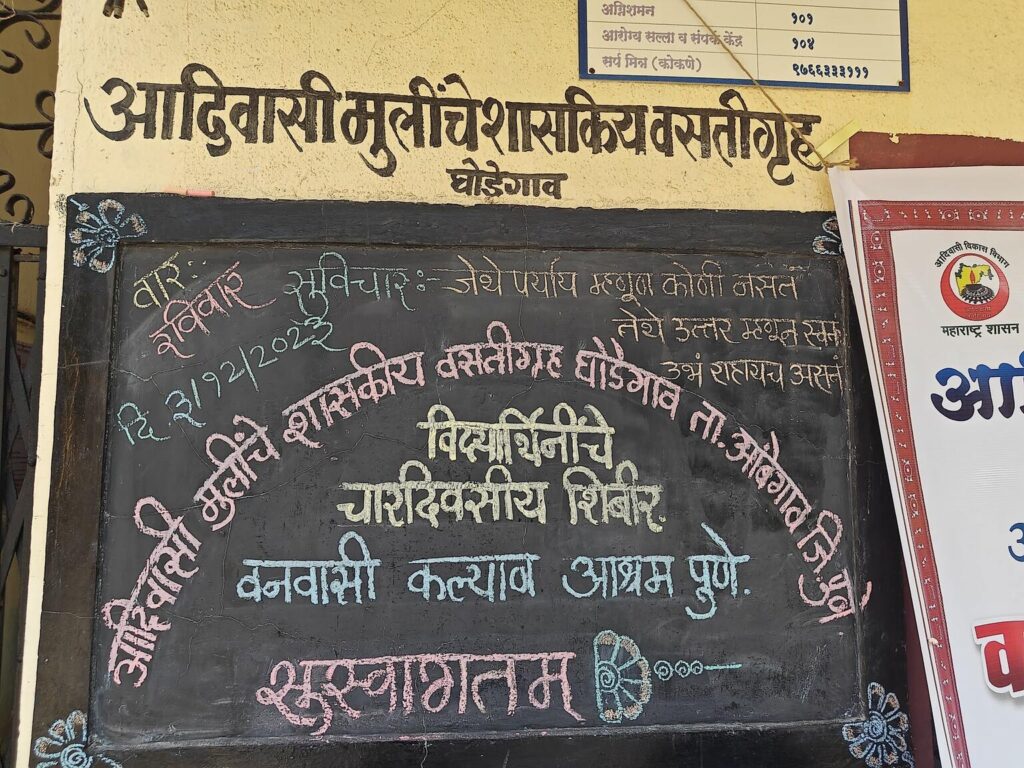 अग्निशमन १०१
आरोग्य सल्ला व संपर्क केंद्र १०४
सर्प मित्र (कोकणे) ९७६६३३३१११
आदिवासी मुलींचे शासकिय वसतीगृह
घोडेगाव
वार:-
रविवार
दि ३/१२/२०२३
सुविचार:- जेथे पर्याय म्हणून कोणी नसतं
तेथे उत्तर म्हणून स्वतः
उभं राहायचं असतं
आदिवासी मुलींचे शासकीय वसतीगृह घोडेगाव ता. आंबेगाव जि. पुणे
विद्यार्थिनींचे
चारदिवसीय शिबीर.
वनवासी कल्याण आश्रम पुणे.
सुस्वागतम्
आदिवासी विकास विभाग
महाराष्ट्र शासन